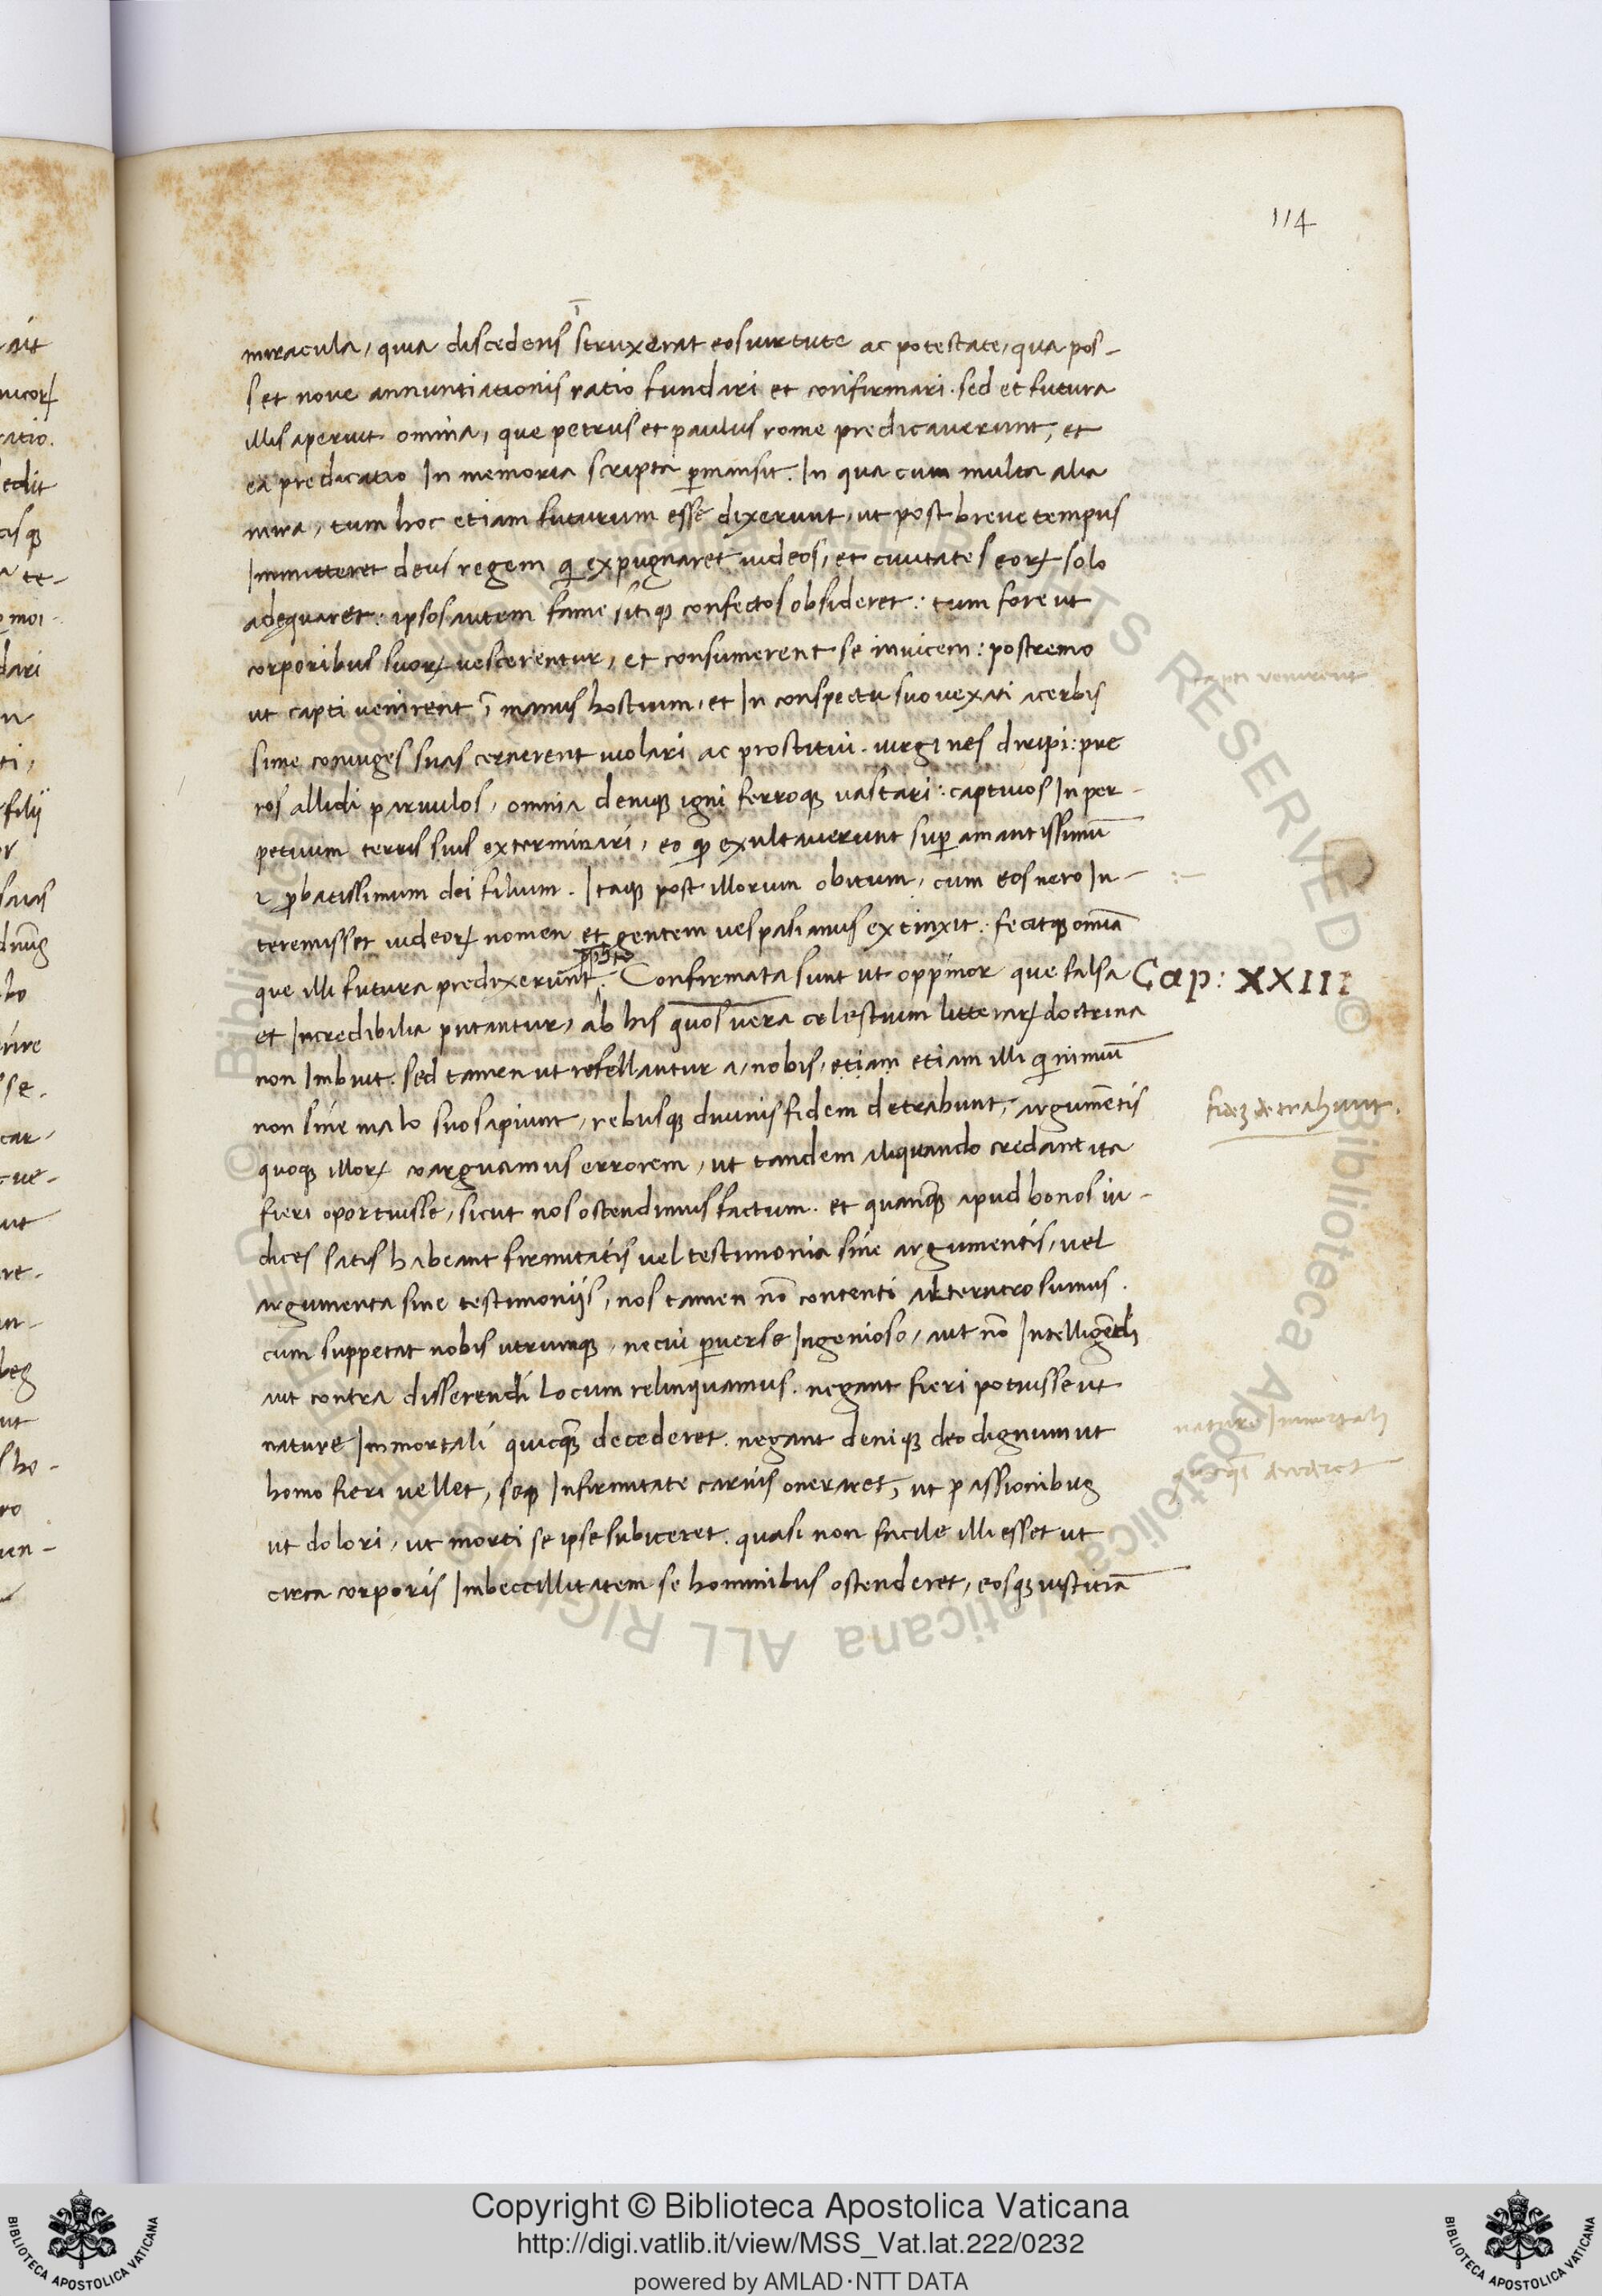 114
miracula, quia discedens ī struxerat eos uirtute ac potestate, qua pos-
set noue annuntiationis ratio fundari et confirmari. sed et futura
illis aperuit omnia, que petrus et paulus rome predicauerunt, et
ea predicatio In memoria scripta ꝑmansit. In qua cum multa alia
mira, tum hoc etiam futurum esse dixerunt, ut post breue tempus
Inmitteret deus regem qi expugnaret iudeos, et ciuitates eoꝝ solo
adequaret: ipsos autem fame sitiqꝫ confectos obsideret: tum fore ut
corporibus suoꝝ uescerentur, et consumerent se inuicem: postremo
ut capti uenirent ī manus hostium, et In conspectu suo uexari acerbis
sime coniuges suas cernerent uiolari ac prostitui. uirgines diripi: pue
ros allidi paruulos, omnia deniqꝫ igni ferroqꝫ uastari: captiuos In per-
petuum terris suis exterminari, eo qꝫ exultauerunt suꝑ amantissimū
& ꝓbatissimum dei filium. Itaqꝫ post illorum obitum, cum eos nero In-
teremisset iudeoꝝ nomen et gentem uespasianus extinxit. fecitqꝫ omīa
que illi futura predixerunt. Confirmata sunt ut oppinor que falsa
Cap: XXIII
et Incredibilia putantur, ab his quos uera celestium litteraꝝ doctrina
non Imbuit. sed tamen ut refellantur a, nobis, etiam etiam illi qi nimiū
non sine malo suo sapiunt, rebusqꝫ diuinis fidem detrahunt, argumētis
fidēʒ detrahunt.
quoqꝫ illoꝝ coarguamus errorem, ut tandem aliquando credant ita
fieri oportuisse, sicut nos ostendimus factum. et quanqꝫ apud bonos iu-
dices satis habeant firmitatis uel testimonia sine argumentis, uel
argumenta sine testimoniis, nos tamen nō contenti alterutro sumus.
cum suppetat nobis utrumqꝫ, ne cui ꝑuerse Ingenioso, aut nō Intelligēdi
aut contra disserendi locum relinquamus. negant fieri potuisse ut
nature Immortali quicqꝫ decederet. negant deniqꝫ deo dignum ut
nature Immortali
homo fieri uellet, seqꝫ Infirmitate carnis oneraret, ut passionibus
ut dolori, ut morti se ipse subiceret. quasi non facile illi esset ut
circa corporis Imbecillitatem se hominibus ostenderet, eosqꝫ iustitiā
capti uenirent
Copyright © Biblioteca Apostolica Vaticana
http://digi.vatlib.it/view/MSS_Vat.lat.222/0232
powered by AMLAD·NTT DATA
BIBLIOTECA APOSTOLICA VATICANA
BIBLIOTECA APOSTOLICA VATICANA